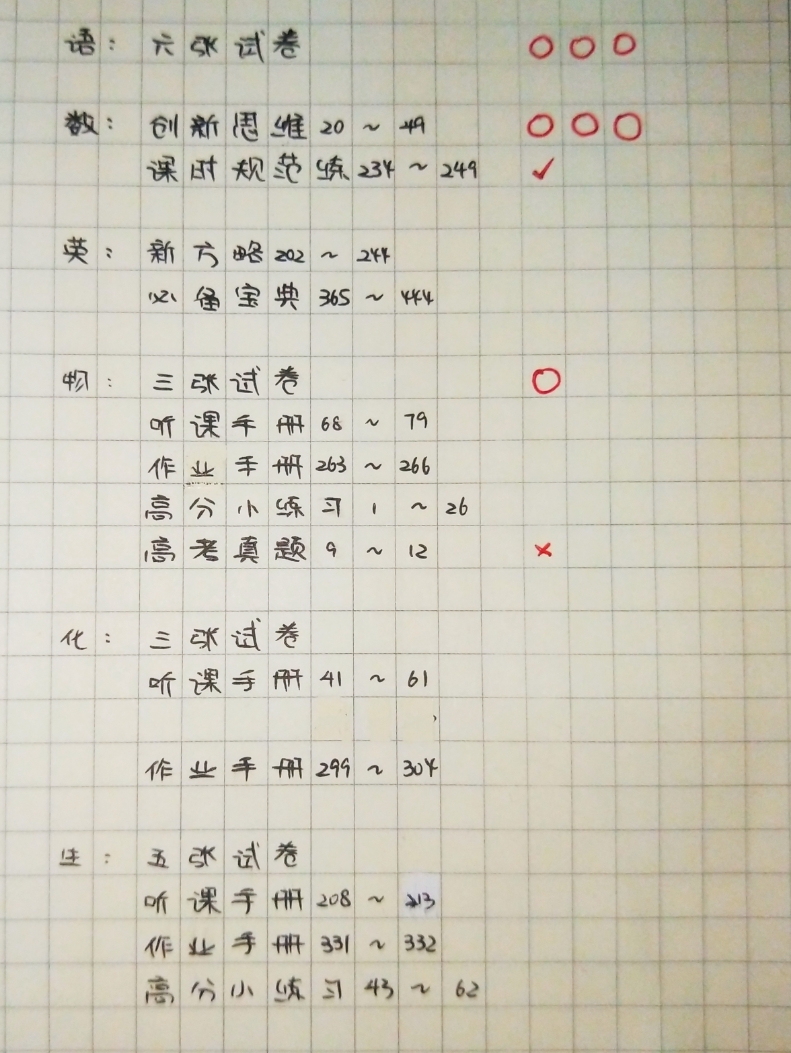 语：六张试卷
数：创新思维 20 ~ 49
课时规范练 234 ~ 249
英：新方略 202 ~ 244
必备宝典 365 ~ 444
物：三张试卷
听课手册 68 ~ 79
作业手册 263 ~ 266
高分小练习 1 ~ 26
高考真题 9 ~ 12
化：三张试卷
听课手册 41 ~ 61
作业手册 299 ~ 304
生：五张试卷
听课手册 208 ~ 213
作业手册 331 ~ 332
高分小练习 43 ~ 62